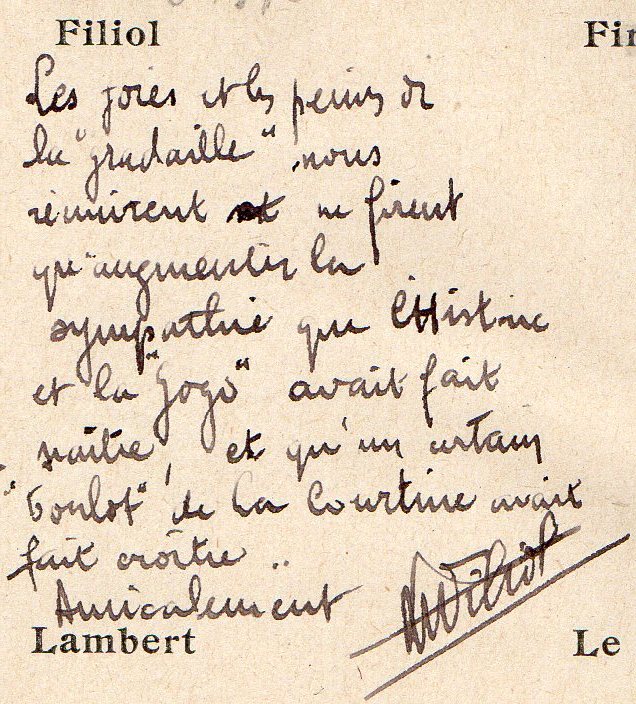 Filiol
Fin
Les joies et les peines de
la "gradaille" nous
réunirent et ne firent
qu'augmenter la
sympathie que l'Histoire
et la "Gogo" avait fait
naître, et qu'un certain
"boulot" de La Courtine avait
fait croître ..
Amicalement
Lambert
Le